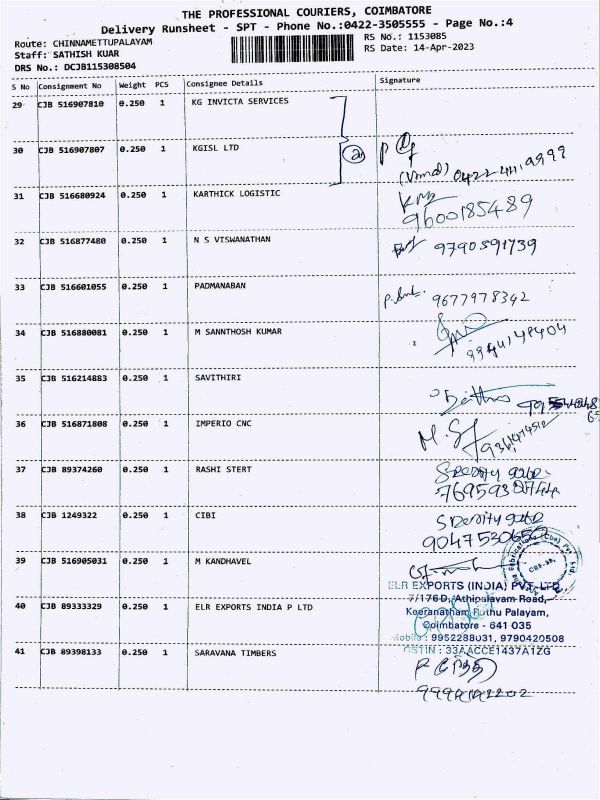 THE PROFESSIONAL COURIERS, COIMBATORE
Delivery Runsheet - SPT - Phone No.:0422-3505555 - Page No.:4
Route: CHINNAMETTUPALAYAM
Staff: SATHISH KUAR
DRS No.: DCJB115308504
RS No.: 1153085
RS Date: 14-Apr-2023
S No Consignment No Weight PCS Consignee Details Signature
29 CJB 516907810 0.250 1 KG INVICTA SERVICES
30 CJB 516907807 0.250 1 KGISL LTD
31 CJB 516680924 0.250 1 KARTHICK LOGISTIC
9600185489
32 CJB 516877480 0.250 1 N S VISWANATHAN
9790591739
33 CJB 516601055 0.250 1 PADMANABAN
9677978342
34 CJB 516880081 0.250 1 M SANNTHOSH KUMAR
35 CJB 516214883 0.250 1 SAVITHIRI
36 CJB 516871808 0.250 1 IMPERIO CNC
37 CJB 89374260 0.250 1 RASHI STERT
38 CJB 1249322 0.250 1 CIBI
39 CJB 516905031 0.250 1 M KANDHAVEL
ELR EXPORTS (INDIA) PVT. LTD
7/176D, Athipalayam Road,
Keeranatham Puthu Palayam,
Coimbatore - 641 035
Mobile : 9952288031, 9790420508
GSTIN : 33AACCE1437A1ZG
40 CJB 89333329 0.250 1 ELR EXPORTS INDIA P LTD
41 CJB 89398133 0.250 1 SARAVANA TIMBERS